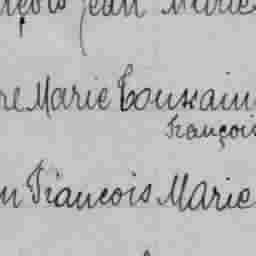 nçois Jean Marie
re Marie Toussain
François
n François Marie